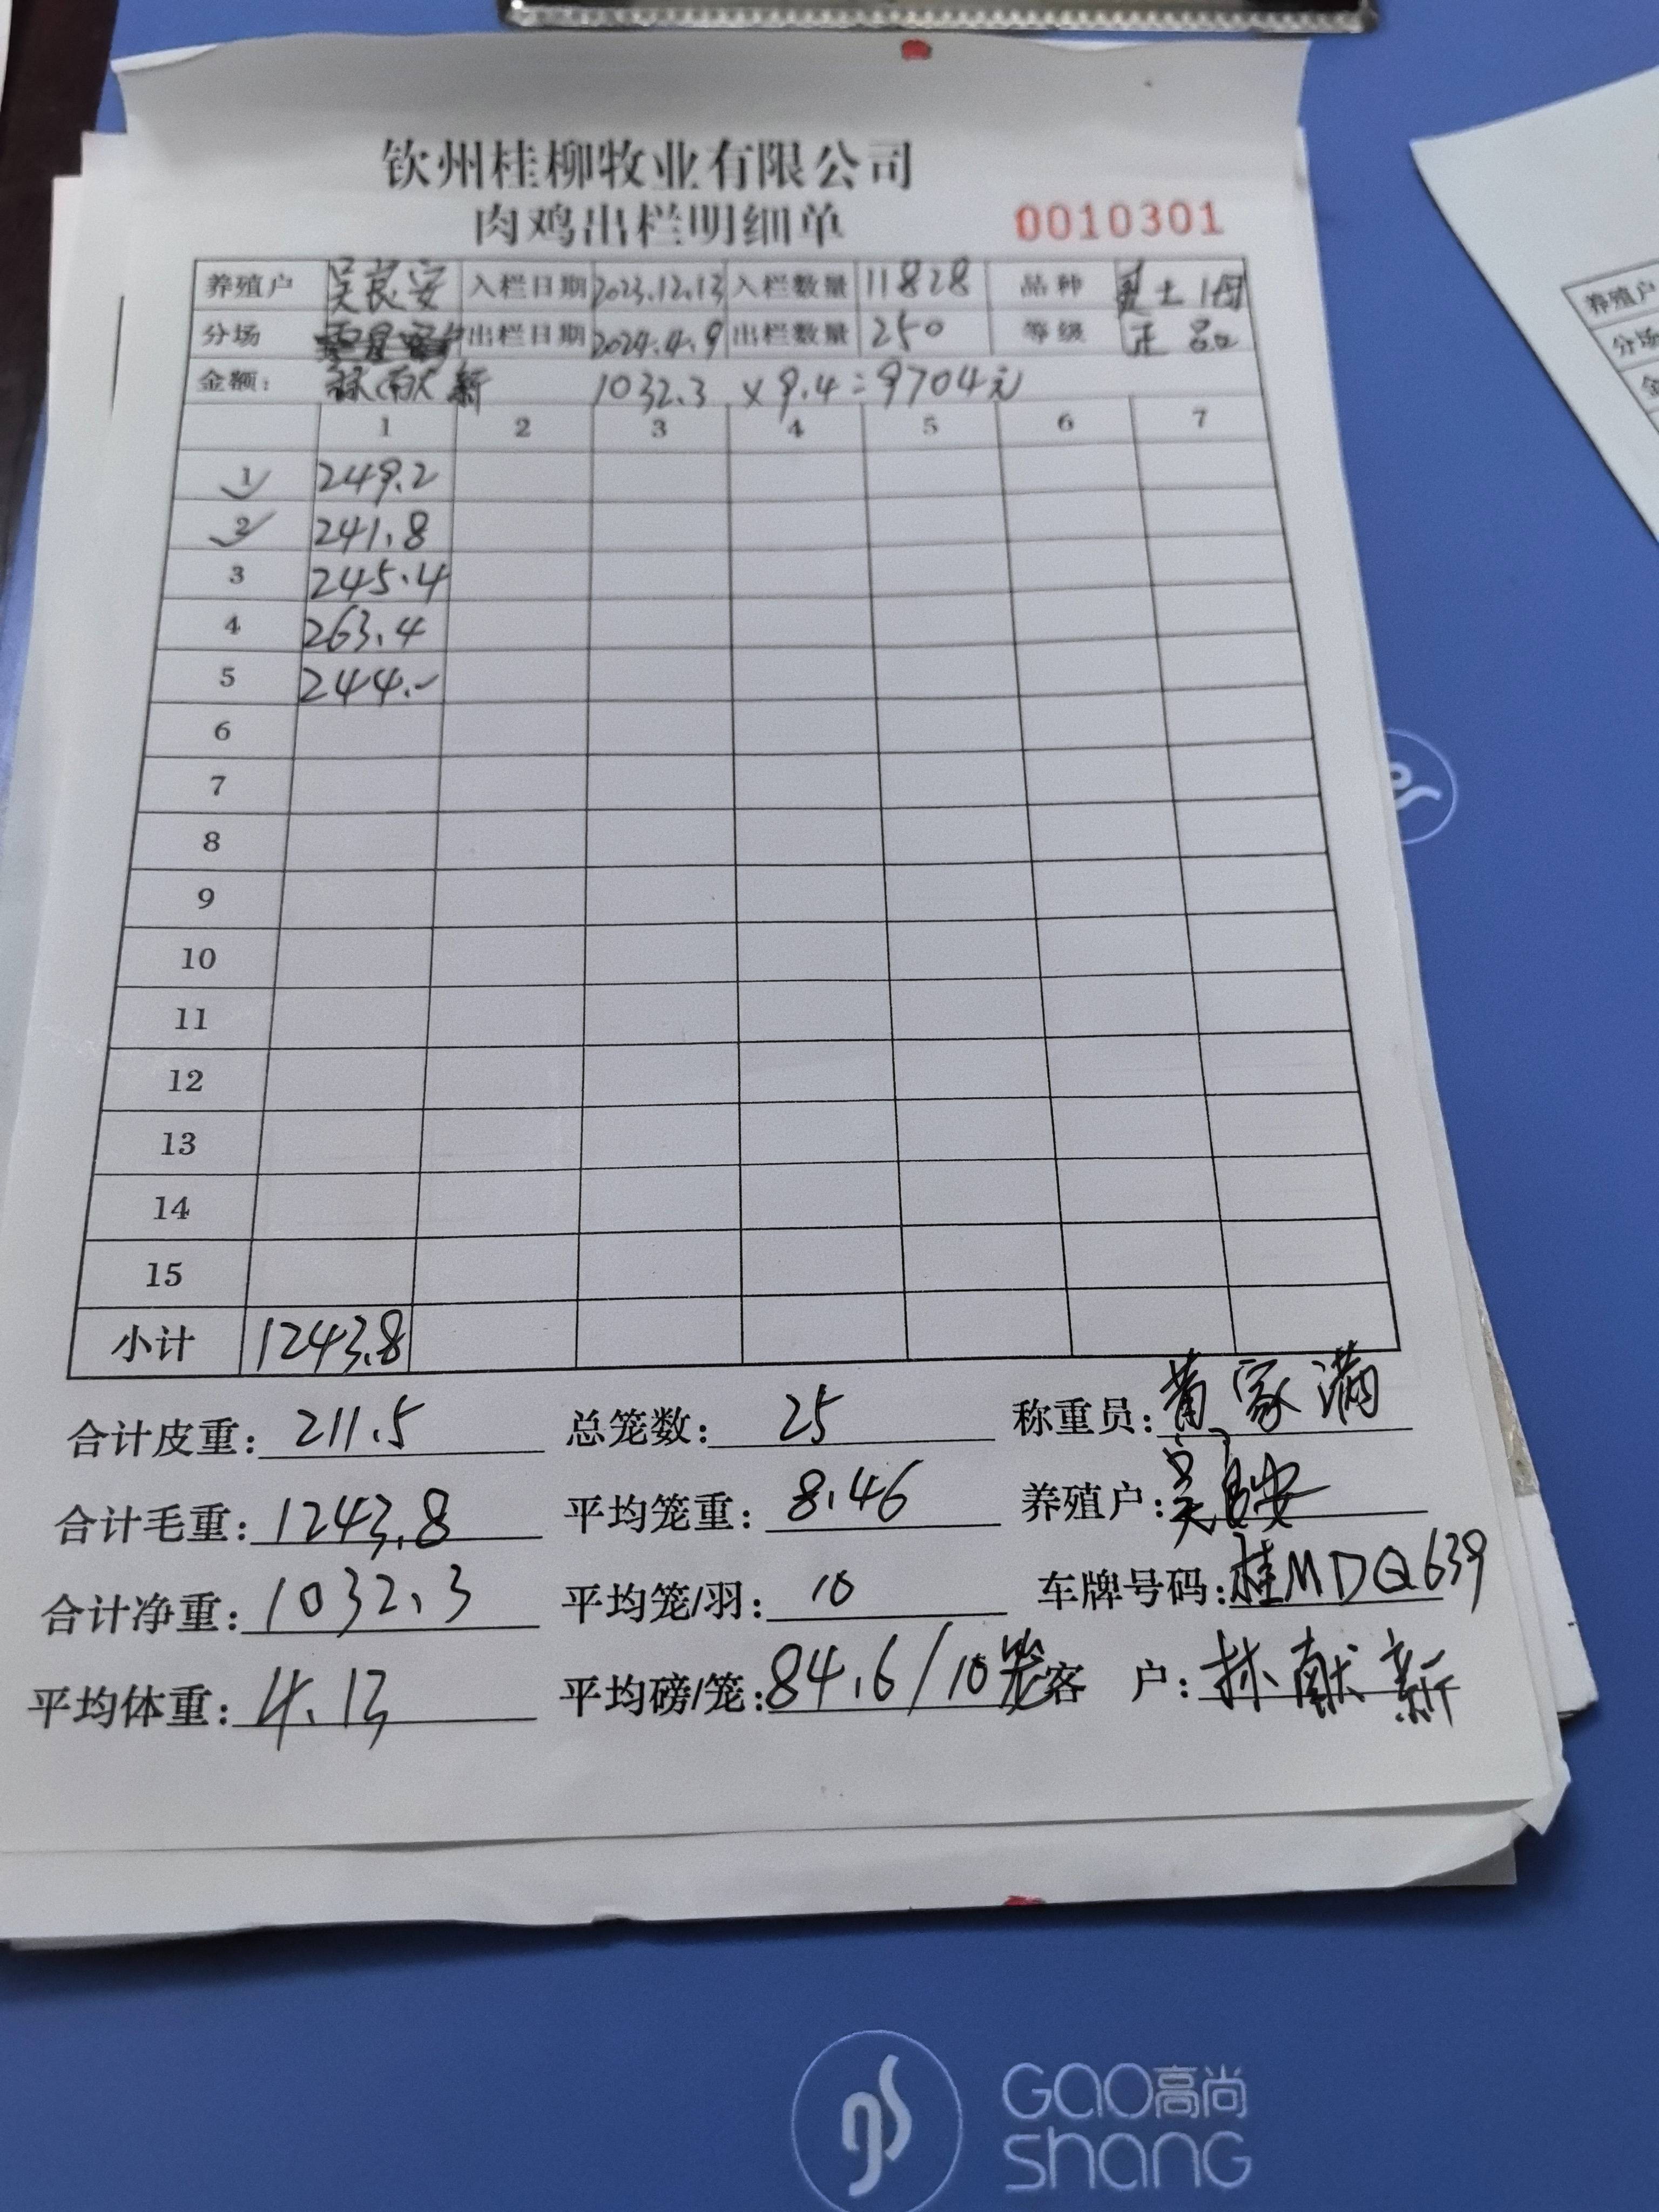 钦州桂柳牧业有限公司
肉鸡出栏明细单 0010301
养殖户 吴良安 入栏日期 2023.12.13 入栏数量 11828 品种 土1母
分场 出栏日期 2024.4.9 出栏数量 250 等级 正品
金额: 林献新 1032.3 × 9.4 = 9704元
1 2 3 4 5 6 7
1 249.2
2 241.8
3 245.4
4 263.4
5 244.-
6
7
8
9
10
11
12
13
14
15
小计 1243.8
合计皮重: 211.5 总笼数: 25 称重员: 黄家满
合计毛重: 1243.8 平均笼重: 8.46 养殖户: 吴良安
合计净重: 1032.3 平均笼/羽: 10 车牌号码: 桂MDQ639
平均体重: 4.13 平均磅/笼: 84.6/10笼 客 户: 林献新
养殖户
分场
金
gs GAO高尚
shang